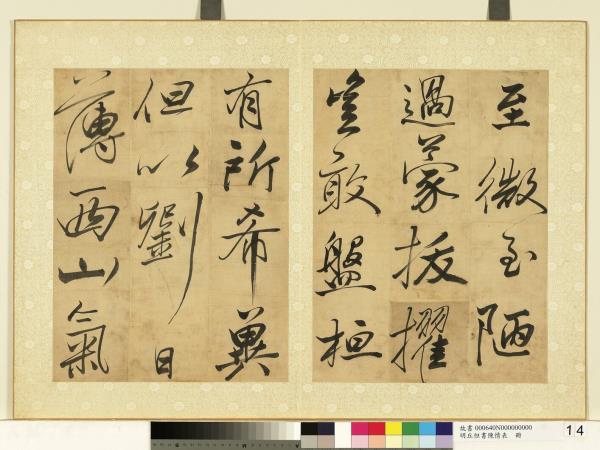 至微至陋
過蒙拔擢
豈敢盤桓
有所希冀
但以劉日
薄西山氣
故書 000640N000000000
明丘但書陳情表 冊
14